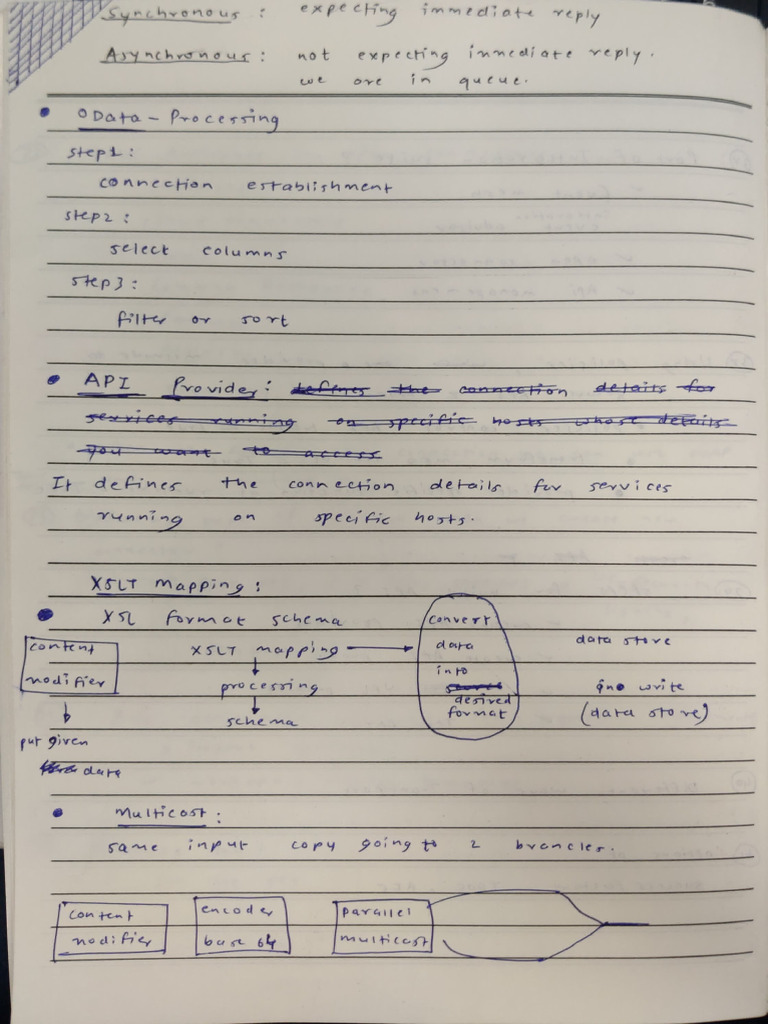 Synchronous : expecting immediate reply
Asynchronous : not expecting immediate reply.
we are in queue.
OData - Processing
step1:
connection establishment
step2 :
select columns
step3 :
filter or sort
API Provider : defines the connection details for
services running on specific hosts whose details
you want to access
It defines the connection details for services
running on specific hosts.
XSLT Mapping :
XSL format schema
content
modifier
put given
data
XSLT mapping
processing
schema
convert
data
into
desired
format
data store
write
(data store)
Multicast :
same input copy going to 2 branches.
content
modifier
encoder
base 64
parallel
multicast